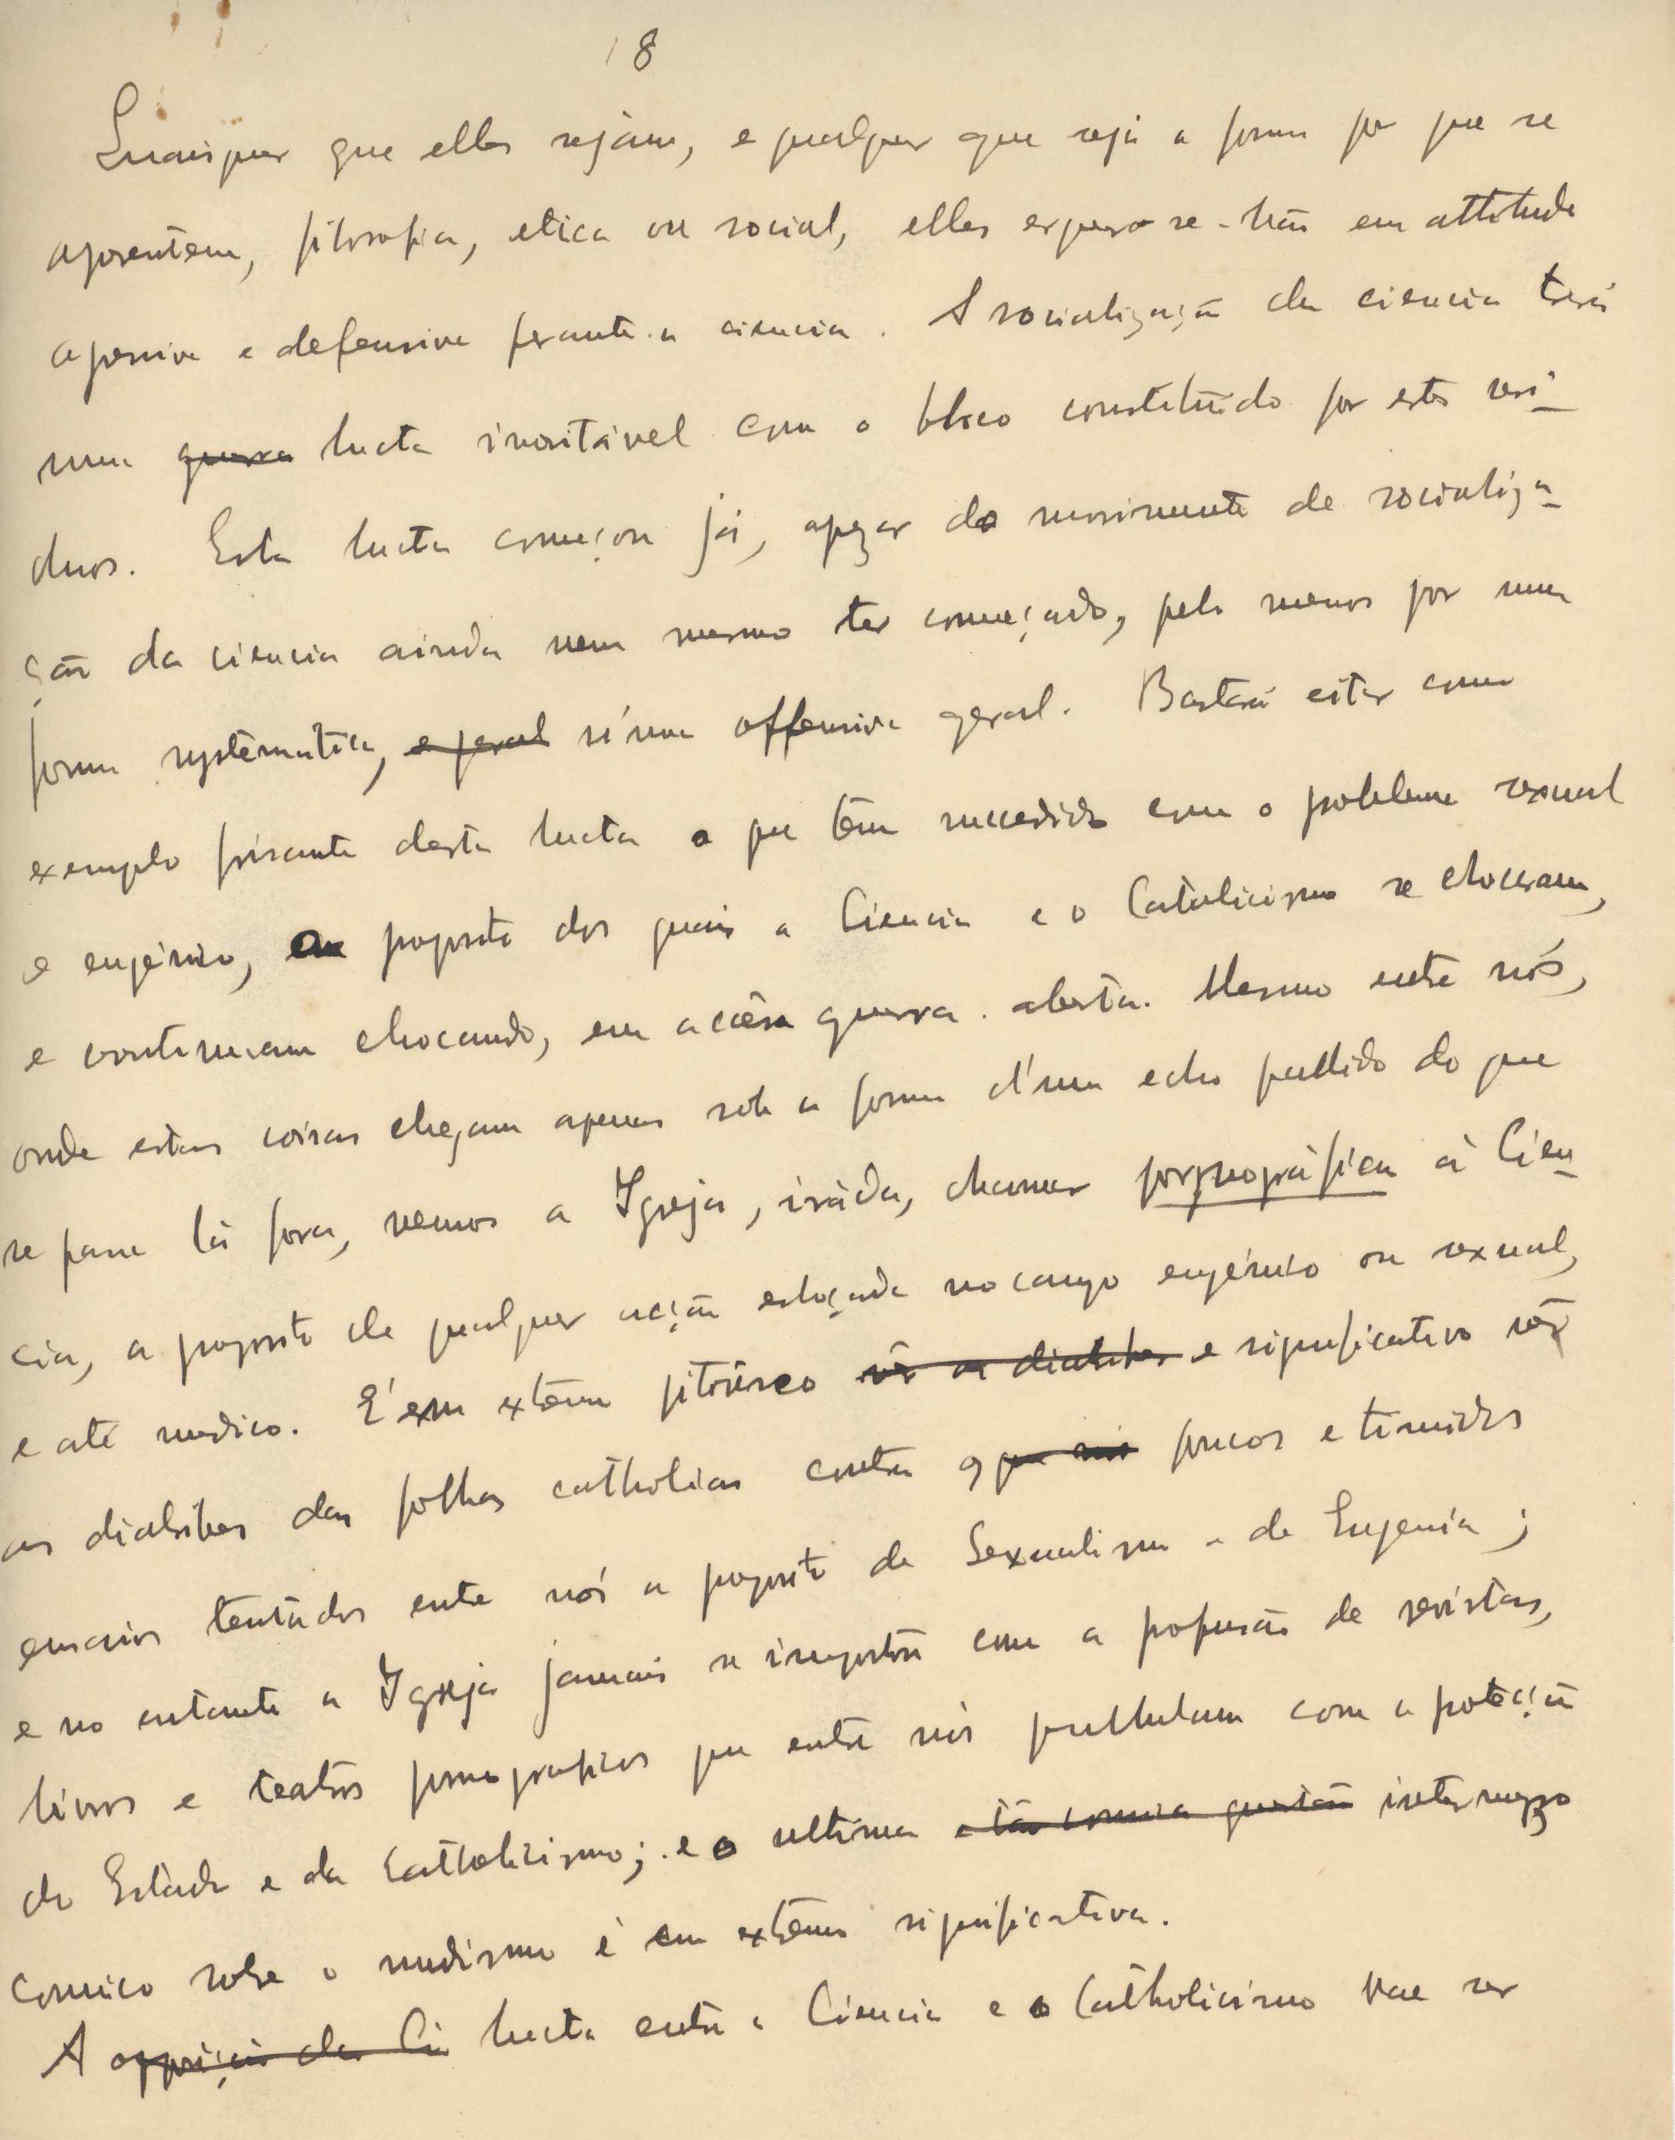 8
Quaisquer que elles sejam, e qualquer que seja a forma por que se
apresentem, filosofica, etica ou social, elles erguer-se-hão em attitude
agressiva e defensiva perante a ciencia. A socialização da ciencia terá
uma guerra lucta inevitável com o bloco constituido por estes resi-
duos. Esta lucta começou já, apezar do movimento de socializa-
ção da ciencia ainda nem mesmo ter começado, pelo menos por uma
forma systematica, e geral n'uma offensiva geral. Bastará citar como
exemplo frisante desta lucta o que tem succedido com o problema sexual
e eugénico, a proposito dos quais a Ciencia e o Catolicismo se chocaram,
e continuam chocando, em accêsa guerra aberta. Mesmo entre nós,
onde estas coisas chegam apenas sob a forma d'um echo pallido do que
se passa lá fora, vemos a Igreja, iráda, chamar pornográfica á Cien-
cia, a proposito de qualquer acção esboçada no campo eugénico ou sexual,
e até medico. É em extremo pitoresco vêr as diatribes e significativo vêr
as diatribes das folhas catholicas contra os poucos e timidos
ensaios tentados entre nós a proposito de Sexualismo e de Eugenia;
e no entanto a Igreja jamais se importou com a profusão de revistas,
livros e teatros pornograficos que entre nós pullulam com a proteção
do Estado e do Catholicismo; e o ultimo e tão comica questão intermezzo
comico sobre o nudismo é em extremo significativa.
A opposição da Ci lucta entre a Ciencia e o Catholicismo vae ser